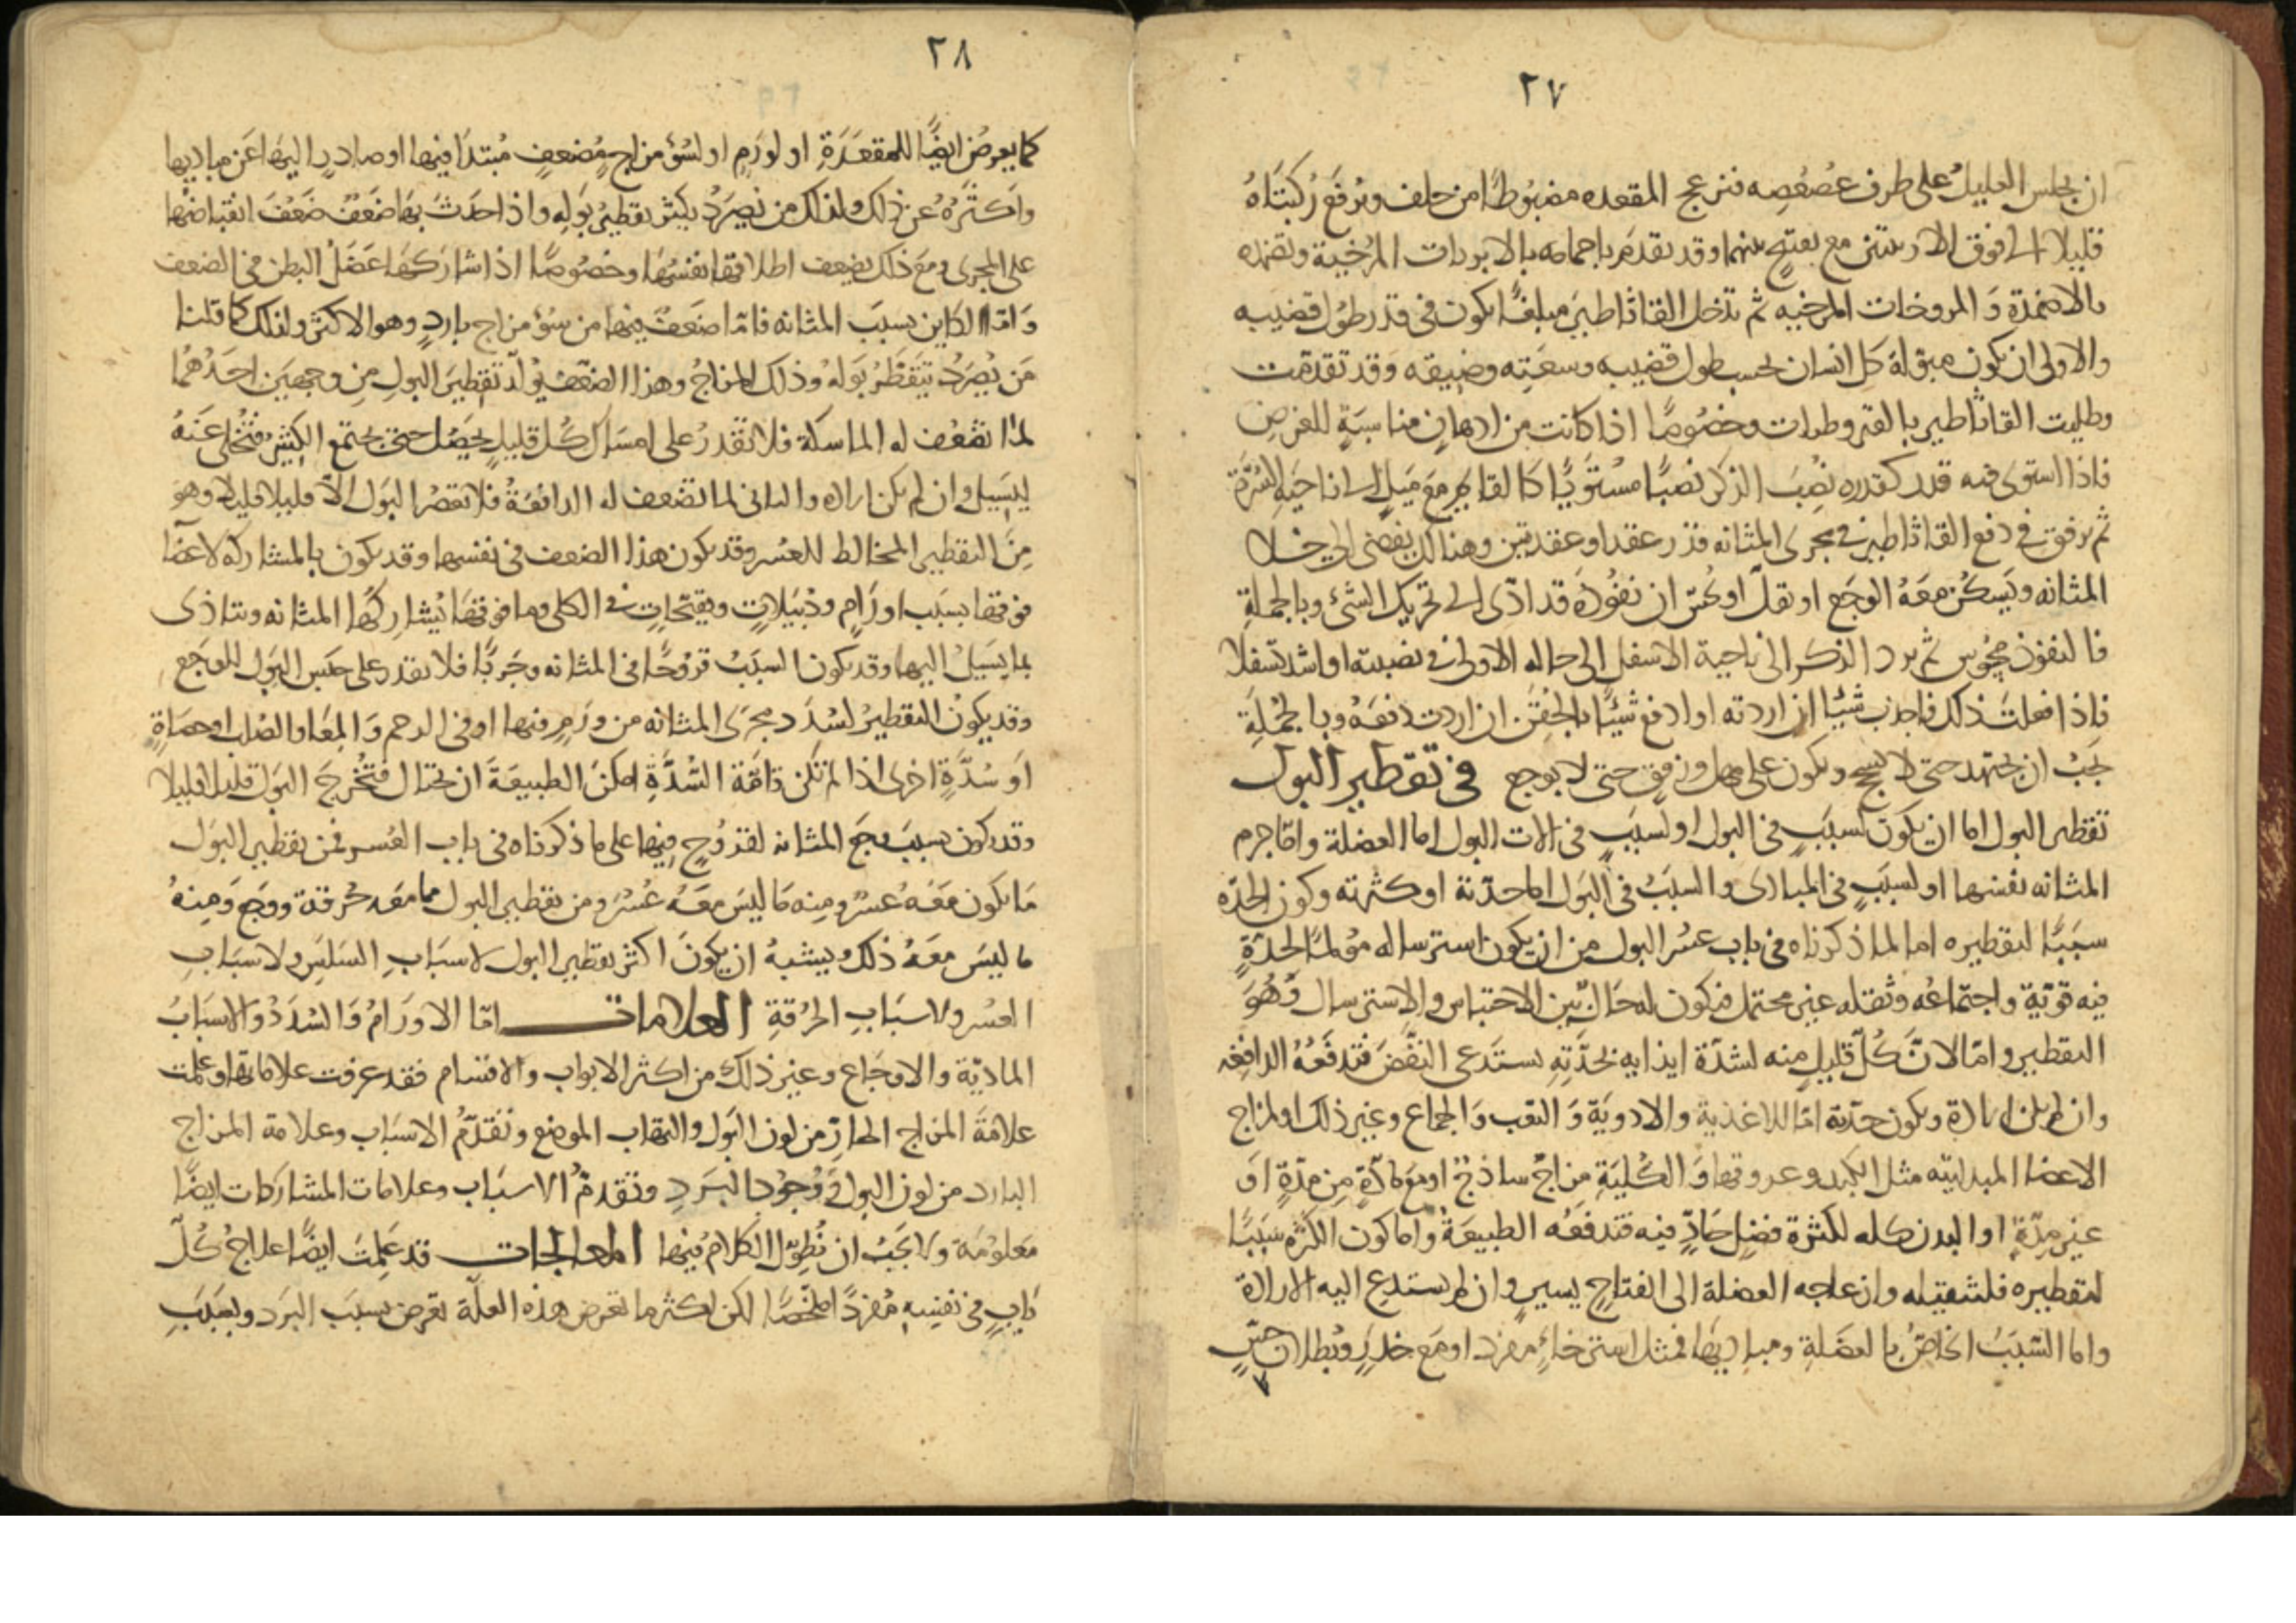 ٢٧
ان يجلس العليل على طرف عصعصه منزعج المقعده مضبوطًا من خلف وترفع ركبتاهُ
قليلا الى فوق الاربيتين مع تفتيح بينهما وقد تقدم باحمامه بالابزنات المرخية وتضمده
بالاضمدة وَالمروخات المرخيه ثم تدخل القاثاطير مبلغًا يكون في قدر طول قضيبه
والاولى ان يكون مبولة كل انسان بحسب طول قضيبه وسعته وضيقه وَقد تقدمت
وطليت القاثاطير بالقيروطيات وخصُوصًا اذا كانت من ادهانٍ مناسبَةٍ للغرضِ
فاذا استوى فيه قدر كقدره نصِبَ الذكر نصبًا مستويًا كالقايم مع مَيلٍ الى ناحيَةِ السُرّة
ثم يرفق في دفع القاثاطير في مجرى المثانه قدر عقد او عقدتين وهنالك يفضي الى خلا
المثانه ويَسكُن معَهُ الوجَع او يقلّ او يحُسّ ان نفُوذَه قد ادّى الى تحريك الشئ وبالجملةِ
فالنفوذ محسُوس ثم يرد الذكر الى ناحية الاسفل الى حاله الاولى في نصبته او اشد تسفلا
فإذا فعلت ذلك فاجذب شيئًا ان اردته او ادفع شيئًا بالحقن ان اردت دفعَهُ وبالجُملَةِ
يجبُ ان يجتهد حتى لا يسحج ويكون على مهل ورفقٍ حتى لا يوجع في تقطير البول
تقطير البول اما ان يكون لسببٍ في البول او لسببٍ في الات البول اما العضلة وامّا جرم
المثانه نفسها او لسبَبٍ في المبادى والسبَبُ في البَول اما حدّته او كثرته وكون الحدّه
سبَبًا لتقطيره اما لما ذكرناه في باب عسُر البول من ان يكون استرساله مؤلمًا لحدّةٍ
فيه قويّة واجتماعُه وثقله غير محتمل فيكون له حَالٌ بين الاحتباس والاسترسال وَهُوَ
التقطير وامّا لانّ كُلّ قليلٍ منه لشدّة ايذايه بحدّتِهِ يستَدعى النفَضَ فتدفعُهُ الدافِعَه
وان لم يكن ارادة ويكون حدّته امّا للاغذية والادويَة وَالتعب وَالجماع وغير ذلك او لمزاج
الاعضا المبدايته مثل الكبد وعروقها وَالكُليَةِ مزاجٌ ساذجٌ او مَع مادّةٍ من مدّةٍ اوَ
غير مدّةٍ او البدن كله لكثرة فضلٍ حَادٍّ فيه فتدفعُه الطبيعَةُ واما كون الكثره سبَبًا
لتقطيره فلتثقيله وازعاجه العضلة الى انفتاحٍ يسيرٍ وان لم يستدع اليه الارادة
واما السّببُ الخاصُ بالعضَلةِ ومباديها فمثل استرخاءٍ مفرد او مَع خدَرٍ وبُطلان حِسٍّ
٢٨
كما يعرض ايضًا للمقعَدَةِ او لورَمٍ او لسُوء مزاجٍ مُضعفٍ مُبتدَا فيها او صادرٍ اليهَا عَن مباديها
واكثَرهُ عن ذلك ولذلك من يصرَدُ يكثر تقطيرُ بَولِهِ واذا حدثَ بهَا ضَعفٌ ضَعُفَ انقباضُها
على المجرى ومع ذلك يضعف اطلاقها نفسُهَا وخصُوصًا اذا شاركهَا عَضَلُ البطن في الضعف
وَامّا الكاين بسبَب المثانه فامّا ضَعفٌ فيها من سُوء مزاج باردٍ وهو الاكثر ولذلك كما قلنا
مَن يُصرَدُ يتقَطّرُ بَولهُ وذلك المزاجُ وهذا الضعف يُولّد تقطيرَ البولِ مِن وجهَين احَدُهُما
لما تضعُف له الماسكة فلا تقدرُ على امسَاك كُلّ قليلٍ يحصُل حتى يجتمع الكثيرُ فتخلى عَنهُ
ليَسيلَ وان لم يكن اراده والثانى لما تضعف له الدافعَةُ فلا تعصرُ البَول الا قليلا قليلا وهوَ
مِن التقطير المخالط للعسُر وقد يكون هذا الضعف في نفسها وقد يكون بالمشاركه لاعضَا
فوقها بسبَب اورَامٍ ودُبَيلاتٍ وتقيحَاتٍ في الكلى وما فوقهَا يُشارِكُها المثانه وتتاذى
بما يَسيل اليهَا وقد يكون السبَبُ قروحًا في المثانه وجَربًا فلا يقدر على حبَسِ البَول للوجَع
وقد يكونُ التقطيرُ لسُدَد مجرَى المثانه من ورَمٍ فيها او في الرحم وَالمِعَا والصُلب او حصَاةٍ
اَو سُدَّةٍ اخرى اذا لم تكن تامّة السُّدَّةِ امكنَ الطبيعَةَ ان تحتال فتُخرجَ البَول قليلا قليلا
وقد يكون بسبَب وجَع المثانه لقروُحٍ فيها على ما ذكرناه في باب العُسر فمن تقطير البَول
مَا يكون معَهُ عُسرٌ ومنه مَا ليسَ معَهُ عُسرٌ ومن تقطير البول مما معَه حُرقة ووجَع وَمِنهُ
ما ليسَ معَهُ ذلك ويشبهُ ان يكونَ اكثر تقطير البول لاسبَابِ السَلَسِ ولاسبَابِ
العسُر ولاسبَابِ الحُرقةِ العلامات امّا الاورَامُ وَالسُدَدُ وَالاسبَابُ
الماديّة والاوجَاع وغير ذلك من اكثر الابواب والاقسام فقد عرفت علاماتها وعلمت
علامَةَ المزاج الحارّ من لون البَول والتهاب الموضع وتقدّمُ الاسبَاب وعلامة المزاج
البارد من لون البول وَوُجُود البَردِ وتقدمُ الاسبَاب وعلامات المشاركات ايضًا
مَعلومَةٌ ولا يجبُ ان نُطوّل الكلامُ فيها المعالجات قد عَلِمتَ ايضًا علاجُ كُلّ
بَابٍ في نفسِهِ مُفردًا ملخصًا لكن اكثر ما تعرض هذه العلّة تعرض بسبَب البَرد وبسبَبِ